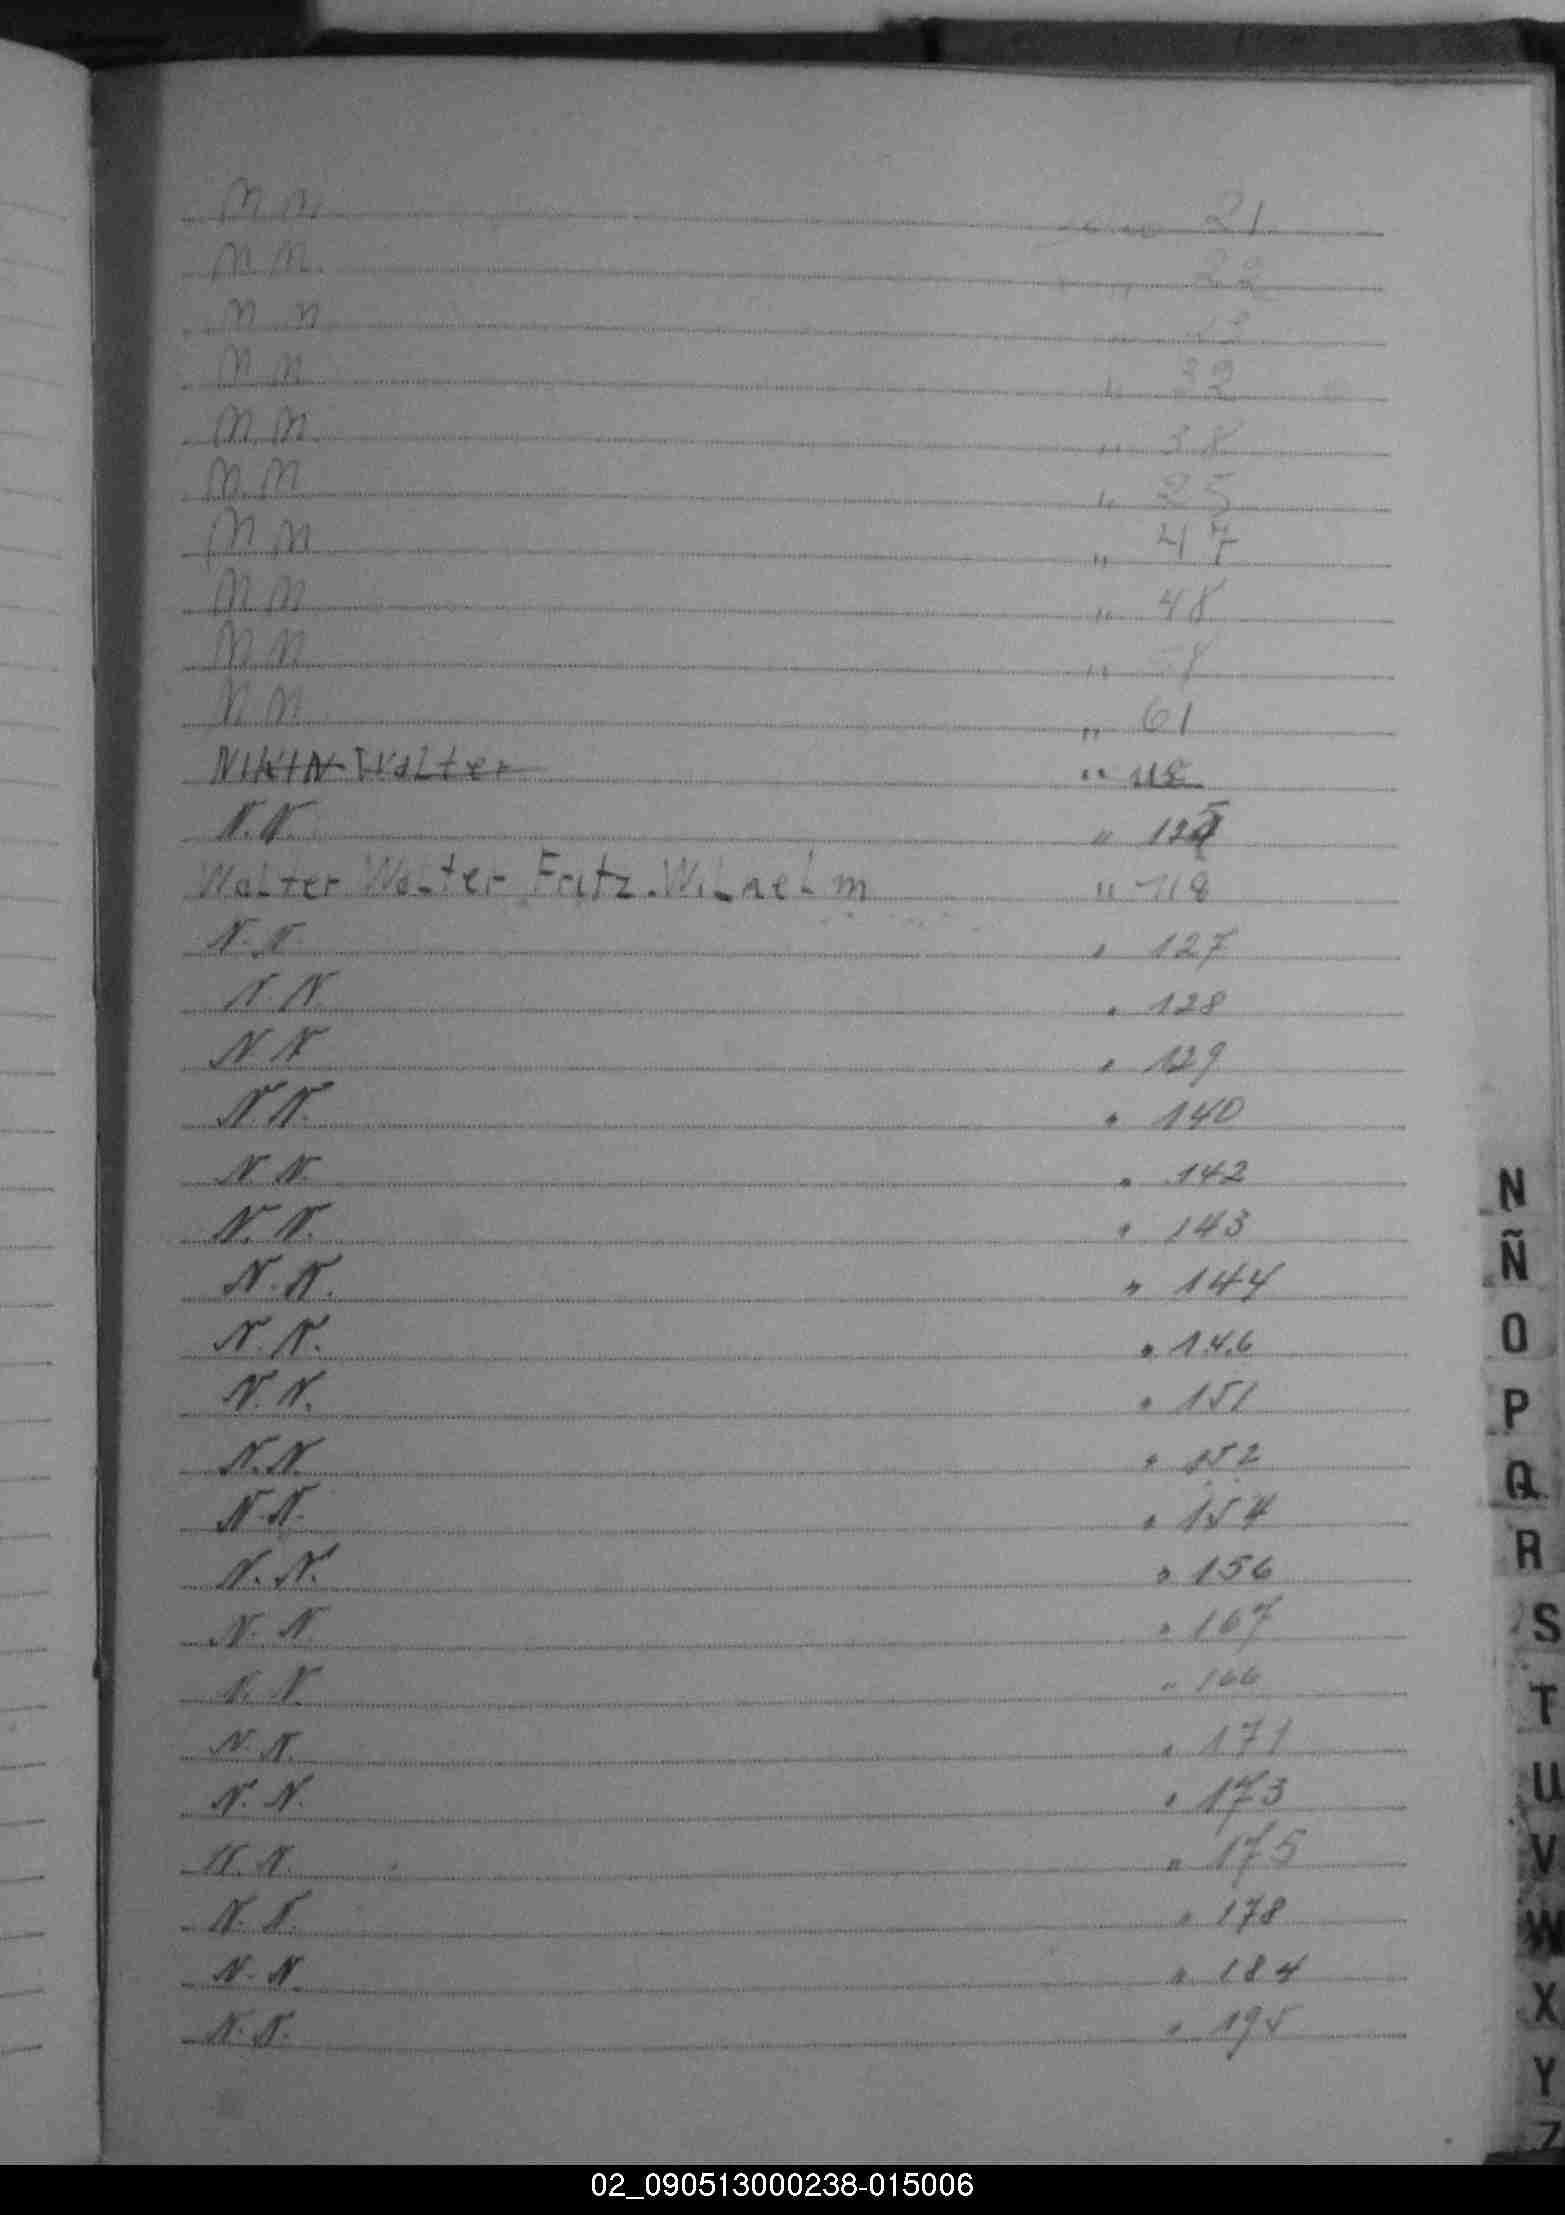 N N. Folio 21
N. N. " 22
N N " 23
N N " 32
N. N. " 38
N. N " 25
N N " 47
N N " 48
N N " 58
N N " 61
NININ Walter " 118
N. N. " 125
Walter Walter Fritz. Wilhelm " 118
N. N. " 127
N. N. " 128
N N. " 129
N N. " 140
N N. " 142
N. N. " 143
N. N. " 144
N. N. " 146
N. N. " 151
N. N. " 152
N. N. " 154
N. N. " 156
N. N " 167
N. N " 166
N. N. " 171
N. N. " 173
N. N. " 175
N. N. " 178
N. N. " 184
N. N. " 195
N
Ñ
O
P
Q
R
S
T
U
V
W
X
Y
Z
02_090513000238-015006